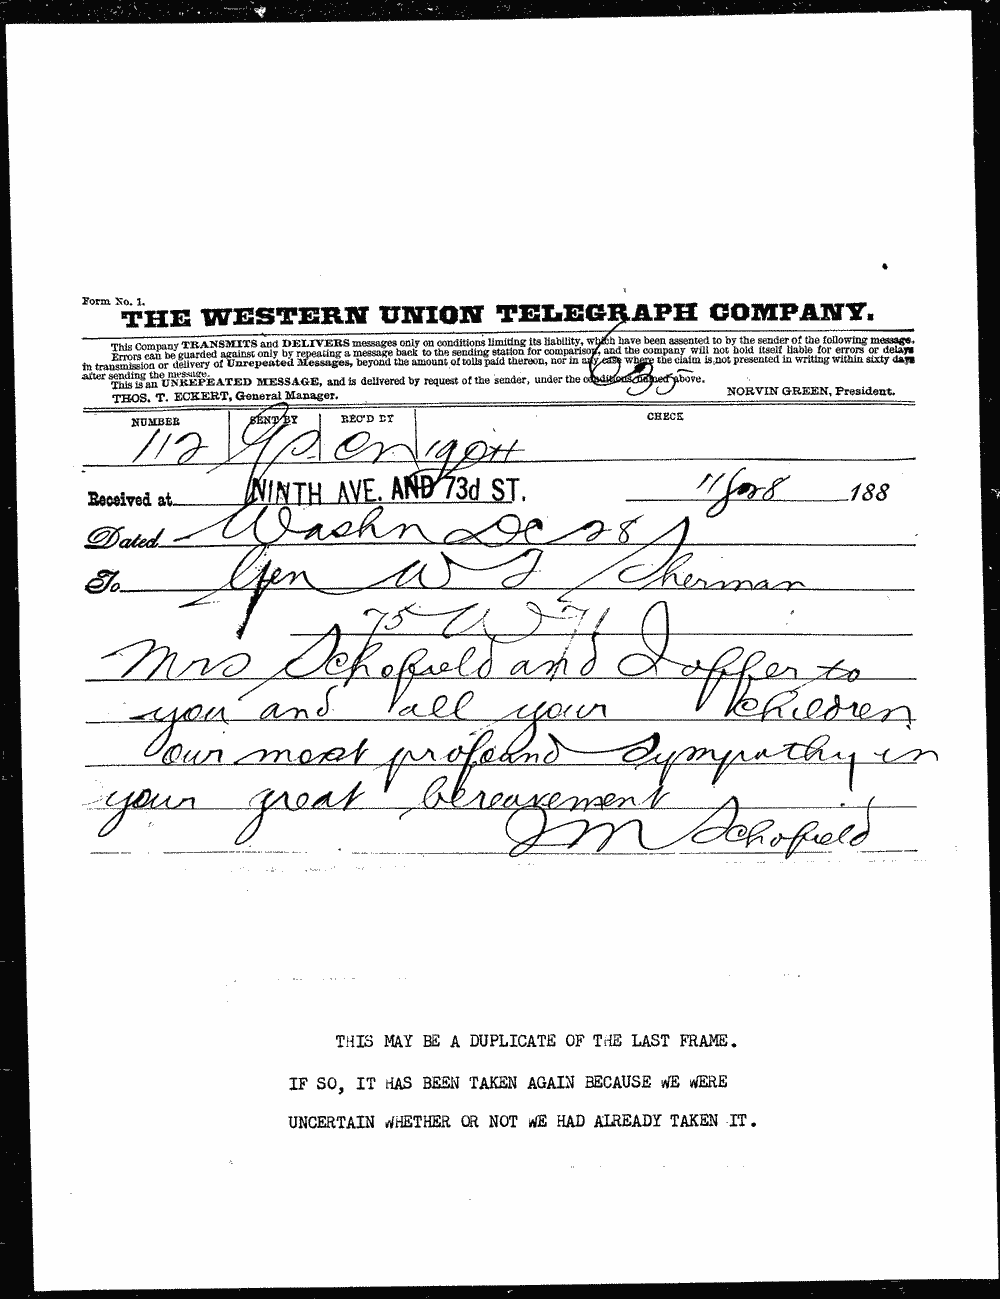 Form No. 1.
THE WESTERN UNION TELEGRAPH COMPANY.
This Company TRANSMITS and DELIVERS messages only on conditions limiting its liability, which have been assented to by the sender of the following message.
Errors can be guarded against only by repeating a message back to the sending station for comparison, and the company will not hold itself liable for errors or delays
in transmission or delivery of Unrepeated Messages, beyond the amount of tolls paid thereon, nor in any case where the claim is not presented in writing within sixty days
after sending the message.
This is an UNREPEATED MESSAGE, and is delivered by request of the sender, under the conditions named above.
THOS. T. ECKERT, General Manager. NORVIN GREEN, President.
635
NUMBER SENT BY REC'D BY CHECK
112
Received at NINTH AVE. AND 73d ST. 188
Dated Washn DC 28
To Gen W T Sherman
75 W 71
Mrs Schofield and I offer to
you and all your children
our most profound sympathy in
your great bereavement
JM Schofield
THIS MAY BE A DUPLICATE OF THE LAST FRAME.
IF SO, IT HAS BEEN TAKEN AGAIN BECAUSE WE WERE
UNCERTAIN WHETHER OR NOT WE HAD ALREADY TAKEN IT.